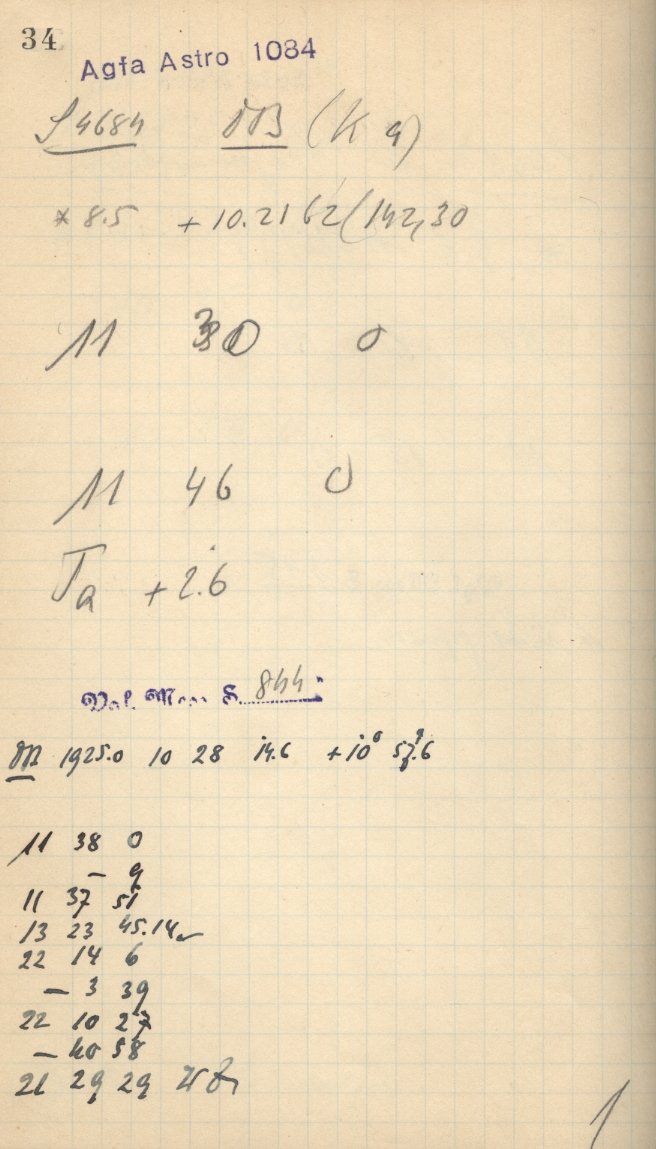 34
Agfa Astro 1084
S 4684 (K 9)
* 8.5 + 10.2162 (142,30
11 30 0
11 46 0
Ta + 2.6
844
1925.0 10 28 14.6 + 10° 57.6
11 38 0
- 9
11 37 51
13 23 45.14
22 14 6
- 3 39
22 10 27
- 40 58
21 29 29
1